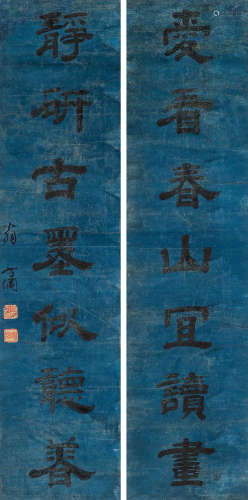 愛看春山宜讀畫
靜研古墨似聽香